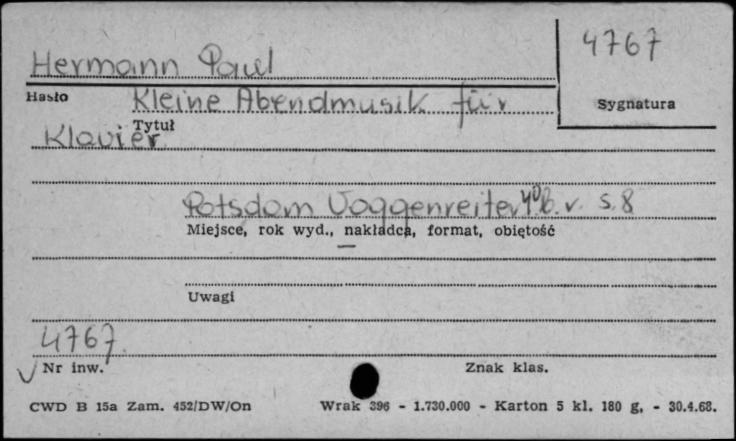 4767
Hermann Paul
Hasło Kleine Abendmusik für
Sygnatura
Tytuł
Klavier
Potsdam Voggenreiter 4° b.r. s. 8
Miejsce, rok wyd., nakładca, format, objętość
Uwagi
4767
Nr inw.
Znak klas.
CWD B 15a Zam. 452/DW/On Wrak 396 - 1.730.000 - Karton 5 kl. 180 g, - 30.4.68.